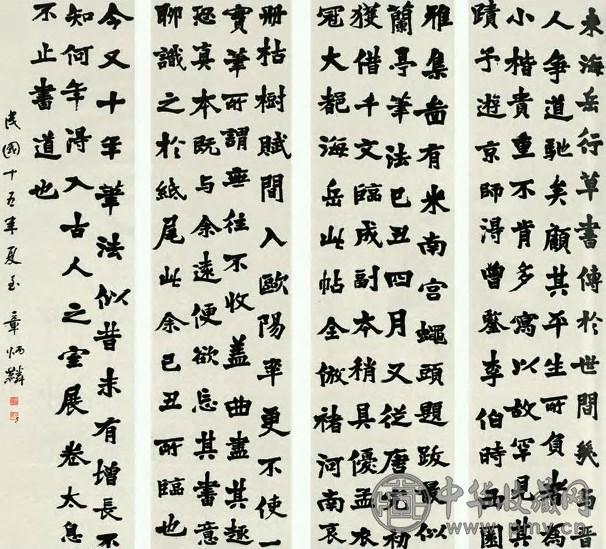 米海岳行草書傳於世間幾与晉
人爭道馳矣顧其平生所負者為
小楷貴重不肯多寫以故罕見其
蹟予遊京師淂曾鑒李伯時西園
雅集啚有米南宮蠅頭題跋最似
蘭亭筆法己丑四月又從唐完初
獲借千文臨成副本稍具優孟衣
冠大都海岳此帖全倣褚河南哀
册枯樹賦間入歐陽率更不使一
實筆所謂無往不收蓋曲盡其趣
恐真本既与余遠便欲忘其書意
聊識之於紙尾此余己丑所臨也
今又十年筆法似昔未有增長不
知何年得入古人之室展卷太息
不止書道也
民國十五年夏至 章炳麟
中华收藏网